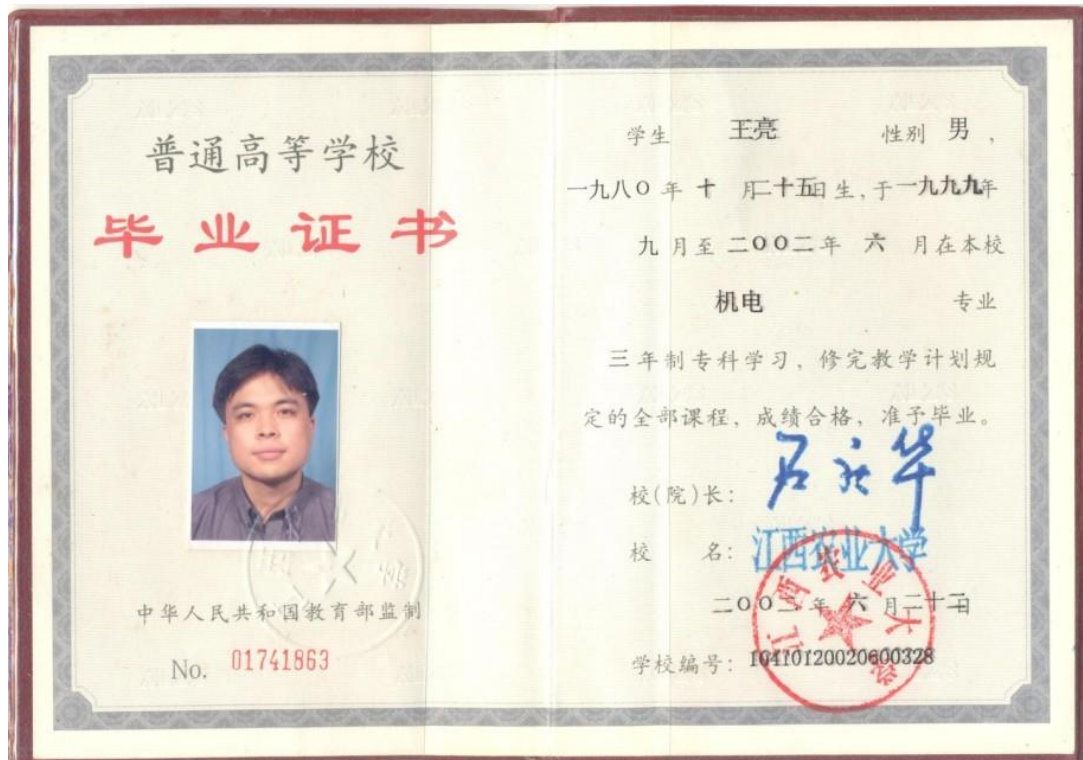 普通高等学校
毕业证书
中华人民共和国教育部监制
No. 01741863
学生 王亮 性别 男，
一九八〇年十月二十五日生，于一九九九年
九月至二〇〇二年六月在本校
机电 专业
三年制专科学习，修完教学计划规
定的全部课程，成绩合格，准予毕业。
校(院)长：
校 名：江西农业大学
二〇〇二年六月二十二日
学校编号：10410120020600328
江西农业大学